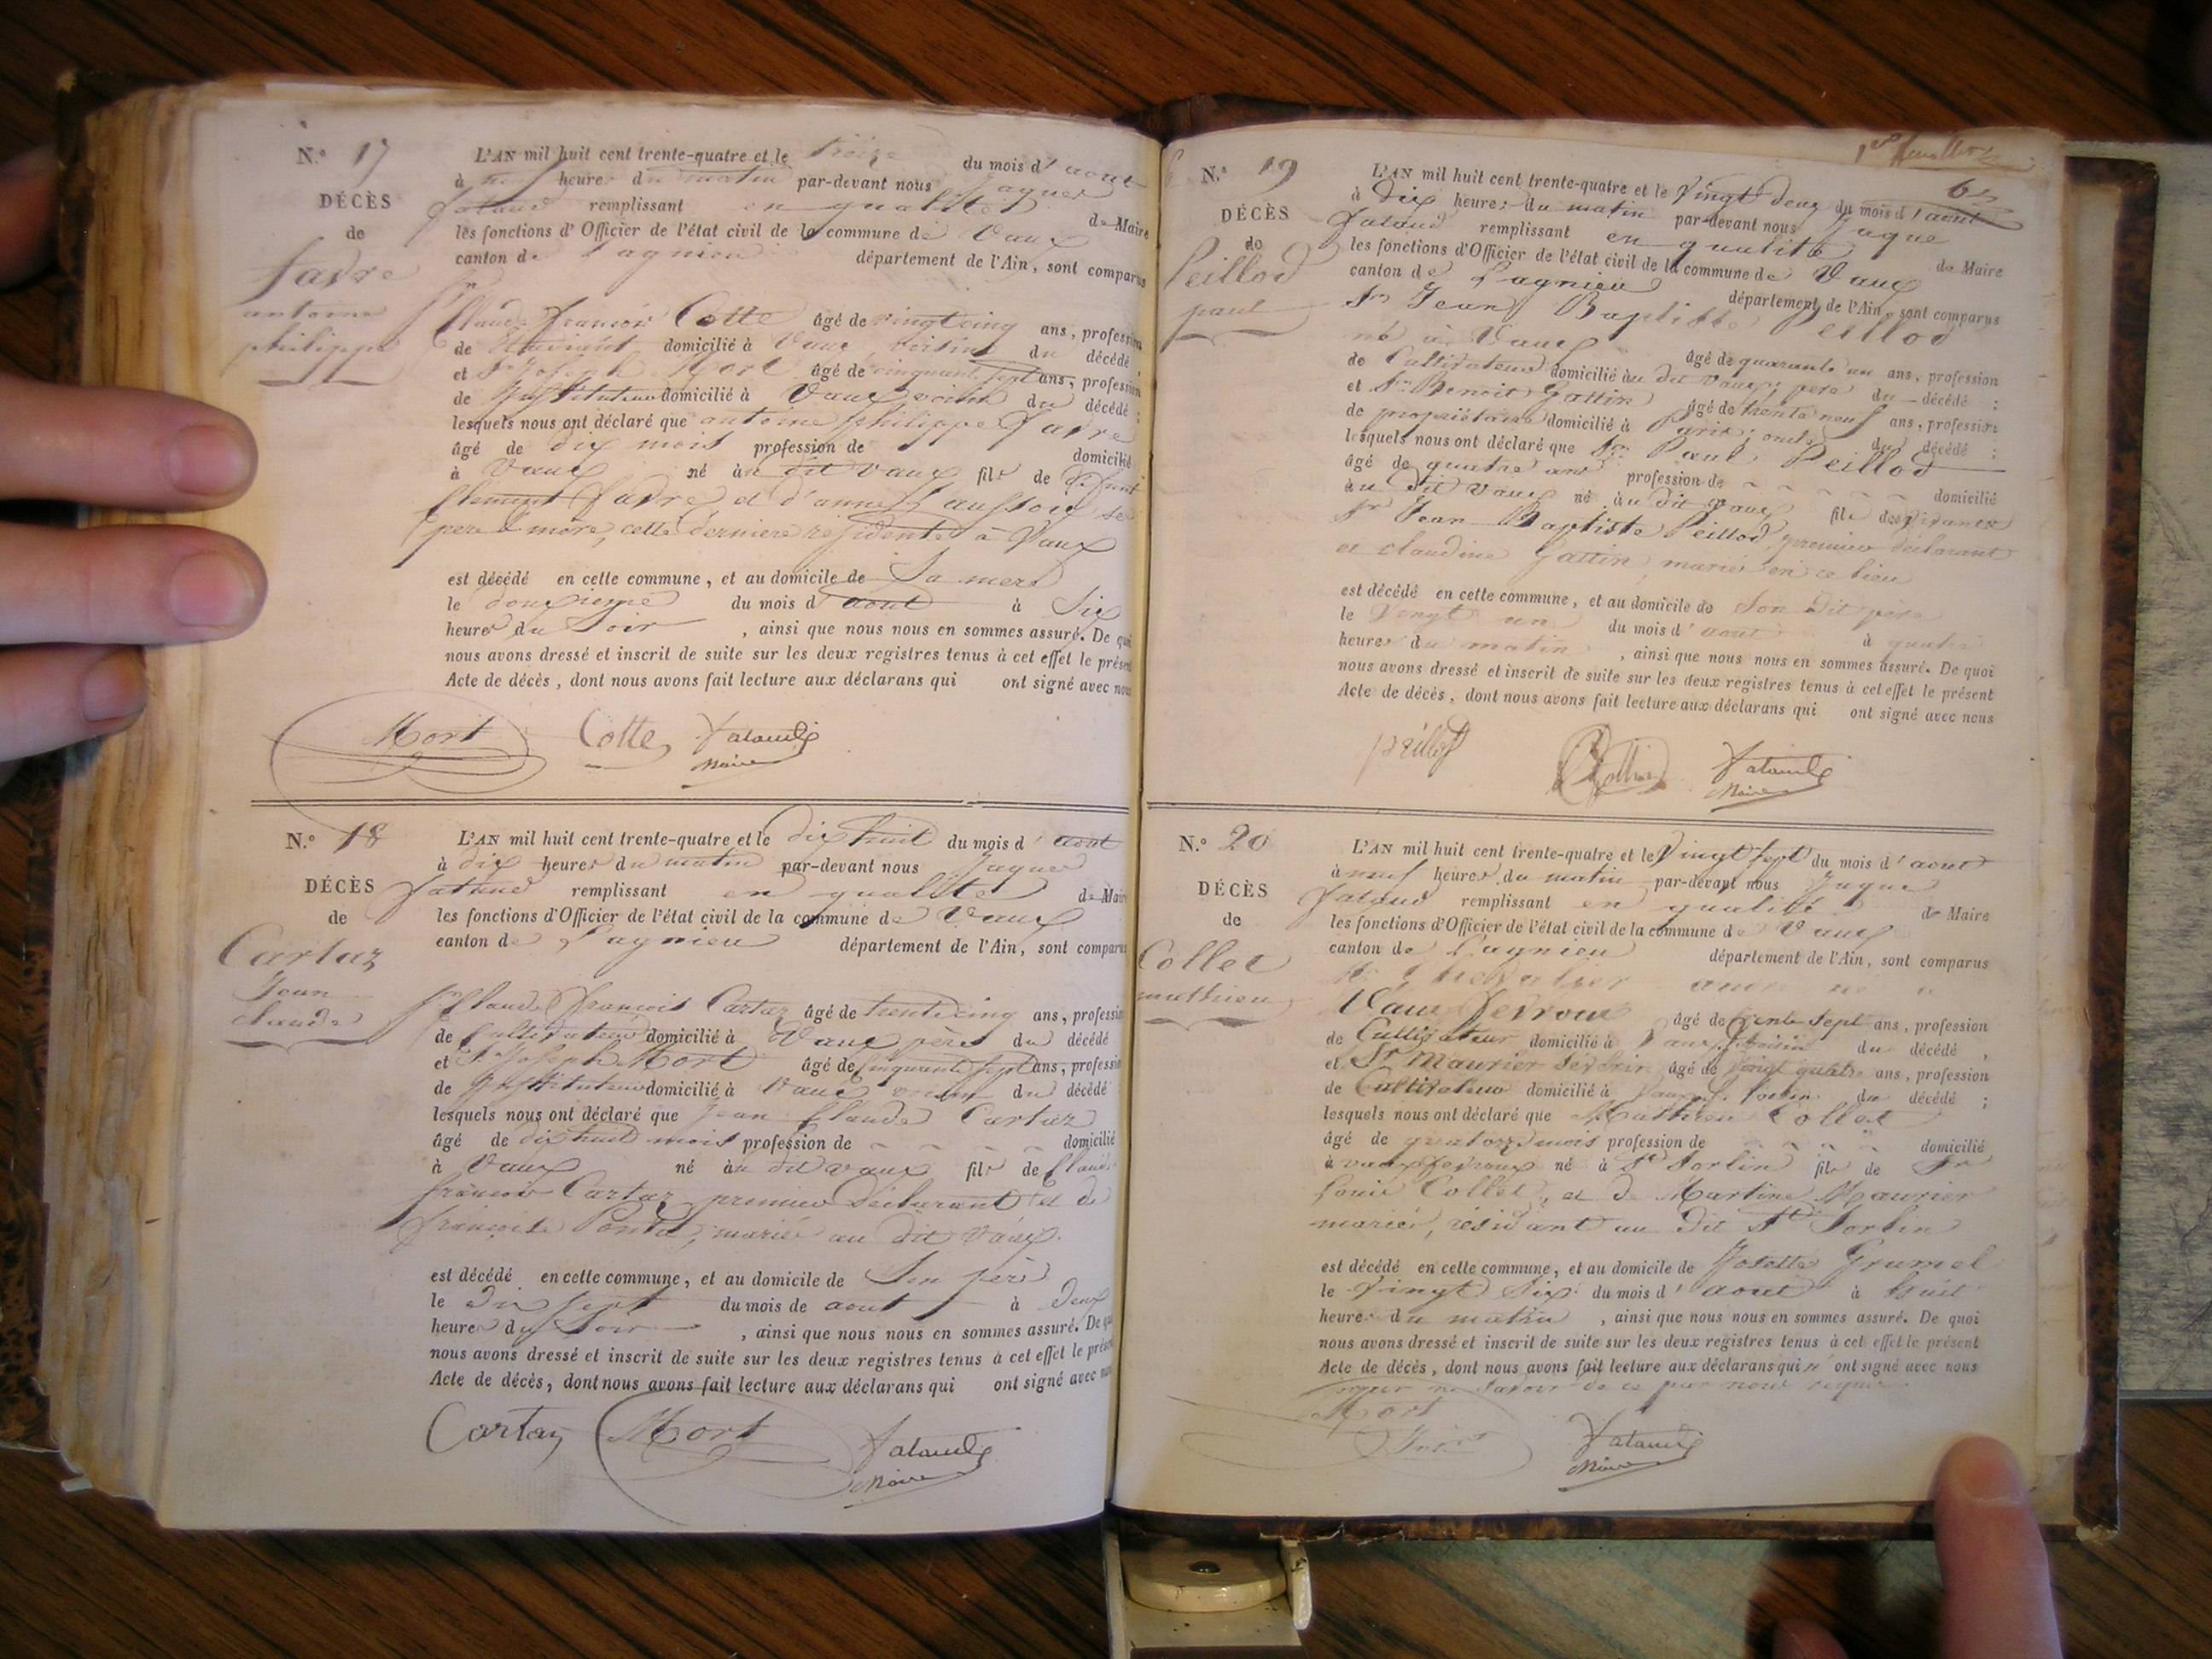 N.° 17
DÉCÈS
de
favre
antoine
philippe
L'AN mil huit cent trente-quatre et le treize du mois d'aout
à heures du matin par-devant nous Jaques
Jataud remplissant en qualité de Maire
les fonctions d'Officier de l'état civil de la commune de Vaux
canton de Lagnieu département de l'Ain, sont comparus
Claude françois Cotte âgé de vingt cinq ans, profession
de domicilié à Vaux, voisin du décédé,
et Sr Joseph Mort âgé de cinquante sept ans, profession
de Instituteur domicilié à Vaux voisin du décédé ;
lesquels nous ont déclaré que antoine philippe favre
âgé de dix mois profession de domicilié
à Vaux né au dit Vaux fils de défunt
Clement favre et d'anne se
pere & mère, cette derniere residente à Vaux
est décédé en cette commune, et au domicile de Sa mere
le douzieme du mois d'aout à Six
heures du Soir, ainsi que nous nous en sommes assuré. De qu
nous avons dressé et inscrit de suite sur les deux registres tenus à cet effet le présen
Acte de décès, dont nous avons fait lecture aux déclarans qui ont signé avec nou
Mort Cotte Jataud
Maire
N.° 18
DÉCÈS
de
Cartaz
Jean
claude
L'AN mil huit cent trente-quatre et le dix huit du mois d'aout
à dix heures du matin par-devant nous Jaques
Jataud remplissant en qualité de Mair
les fonctions d'Officier de l'état civil de la commune de Vaux
canton de Lagnieu département de l'Ain, sont comparus
Sr Claude françois Cartaz âgé de trente cinq ans, professi
de Cultivateur domicilié à Vaux père du décédé
et Sr Joseph Mort âgé de cinquante sept ans, professi
de Instituteur domicilié à Vaux voisin du décédé
lesquels nous ont déclaré que Jean Claude Cartaz
âgé de dix huit mois profession de domicilié
à Vaux né au dit Vaux fils de Claude
françois Cartaz premier déclarant et de
françoise mariés au dit Vaux.
est décédé en cette commune, et au domicile de Son père
le dix sept du mois de aout à deux
heures du Soir, ainsi que nous nous en sommes assuré. De q
nous avons dressé et inscrit de suite sur les deux registres tenus à cet effet le prése
Acte de décès, dont nous avons fait lecture aux déclarans qui ont signé avec
Cartaz Mort Jataud
Maire
N.° 19
DÉCÈS
de
Peillod
paul
L'AN mil huit cent trente-quatre et le Vingt deux du mois d'aout
à dix heures du matin par-devant nous Jaque
Jataud remplissant en qualité de Maire
les fonctions d'Officier de l'état civil de la commune de Vaux
canton de Lagnieu département de l'Ain, sont comparus
Sr Jean Baptiste Peillod
né à Vaux âgé de quarante un ans, profession
de Cultivateur domicilié au dit Vaux; pere du décédé ;
et Sr Benoit Gattin âgé de trente neuf ans, profession
de propriétaire domicilié à Paris; oncle du décédé ;
lesquels nous ont déclaré que Sr Paul Peillod
âgé de quatre ans profession de domicilié
au dit Vaux né au dit Vaux fils des vivants
Sr Jean Baptiste Peillod, premier déclarant
et claudine Gattin mariés en ce lieu
est décédé en cette commune, et au domicile de Son dit pere
le Vingt un du mois d'aout à quatre
heures du matin, ainsi que nous nous en sommes assuré. De quoi
nous avons dressé et inscrit de suite sur les deux registres tenus à cet effet le présent
Acte de décès, dont nous avons fait lecture aux déclarans qui ont signé avec nous
peillod Jataud
Maire
N.° 20
DÉCÈS
de
Collet
mathieu
L'AN mil huit cent trente-quatre et le Vingt sept du mois d'aout
à neuf heures du matin par-devant nous Jaque
Jataud remplissant en qualité de Maire
les fonctions d'Officier de l'état civil de la commune de Vaux
canton de Lagnieu département de l'Ain, sont comparus
Chevalier né à
Vaux fevroux âgé de trente sept ans, profession
de Cultivateur domicilié à Vaux, voisin du décédé,
et Sr Maurier âgé de vingt quatre ans, profession
de Cultivateur domicilié à voisin du décédé ;
lesquels nous ont déclaré que Mathieu Collet
âgé de quatorze mois profession de domicilié
à vaux fevroux né à St Sorlin fils de Sr
Louis Collet, et de Martine Maurier
mariés, résidant au dit St Sorlin
est décédé en cette commune, et au domicile de Josette Grumel
le Vingt Six du mois d'aout à huit
heures du matin, ainsi que nous nous en sommes assuré. De quoi
nous avons dressé et inscrit de suite sur les deux registres tenus à cet effet le présent
Acte de décès, dont nous avons fait lecture aux déclarans qui n'ont signé avec nous
pour ne savoir de ce par nous requis
Mort Jataud
Maire